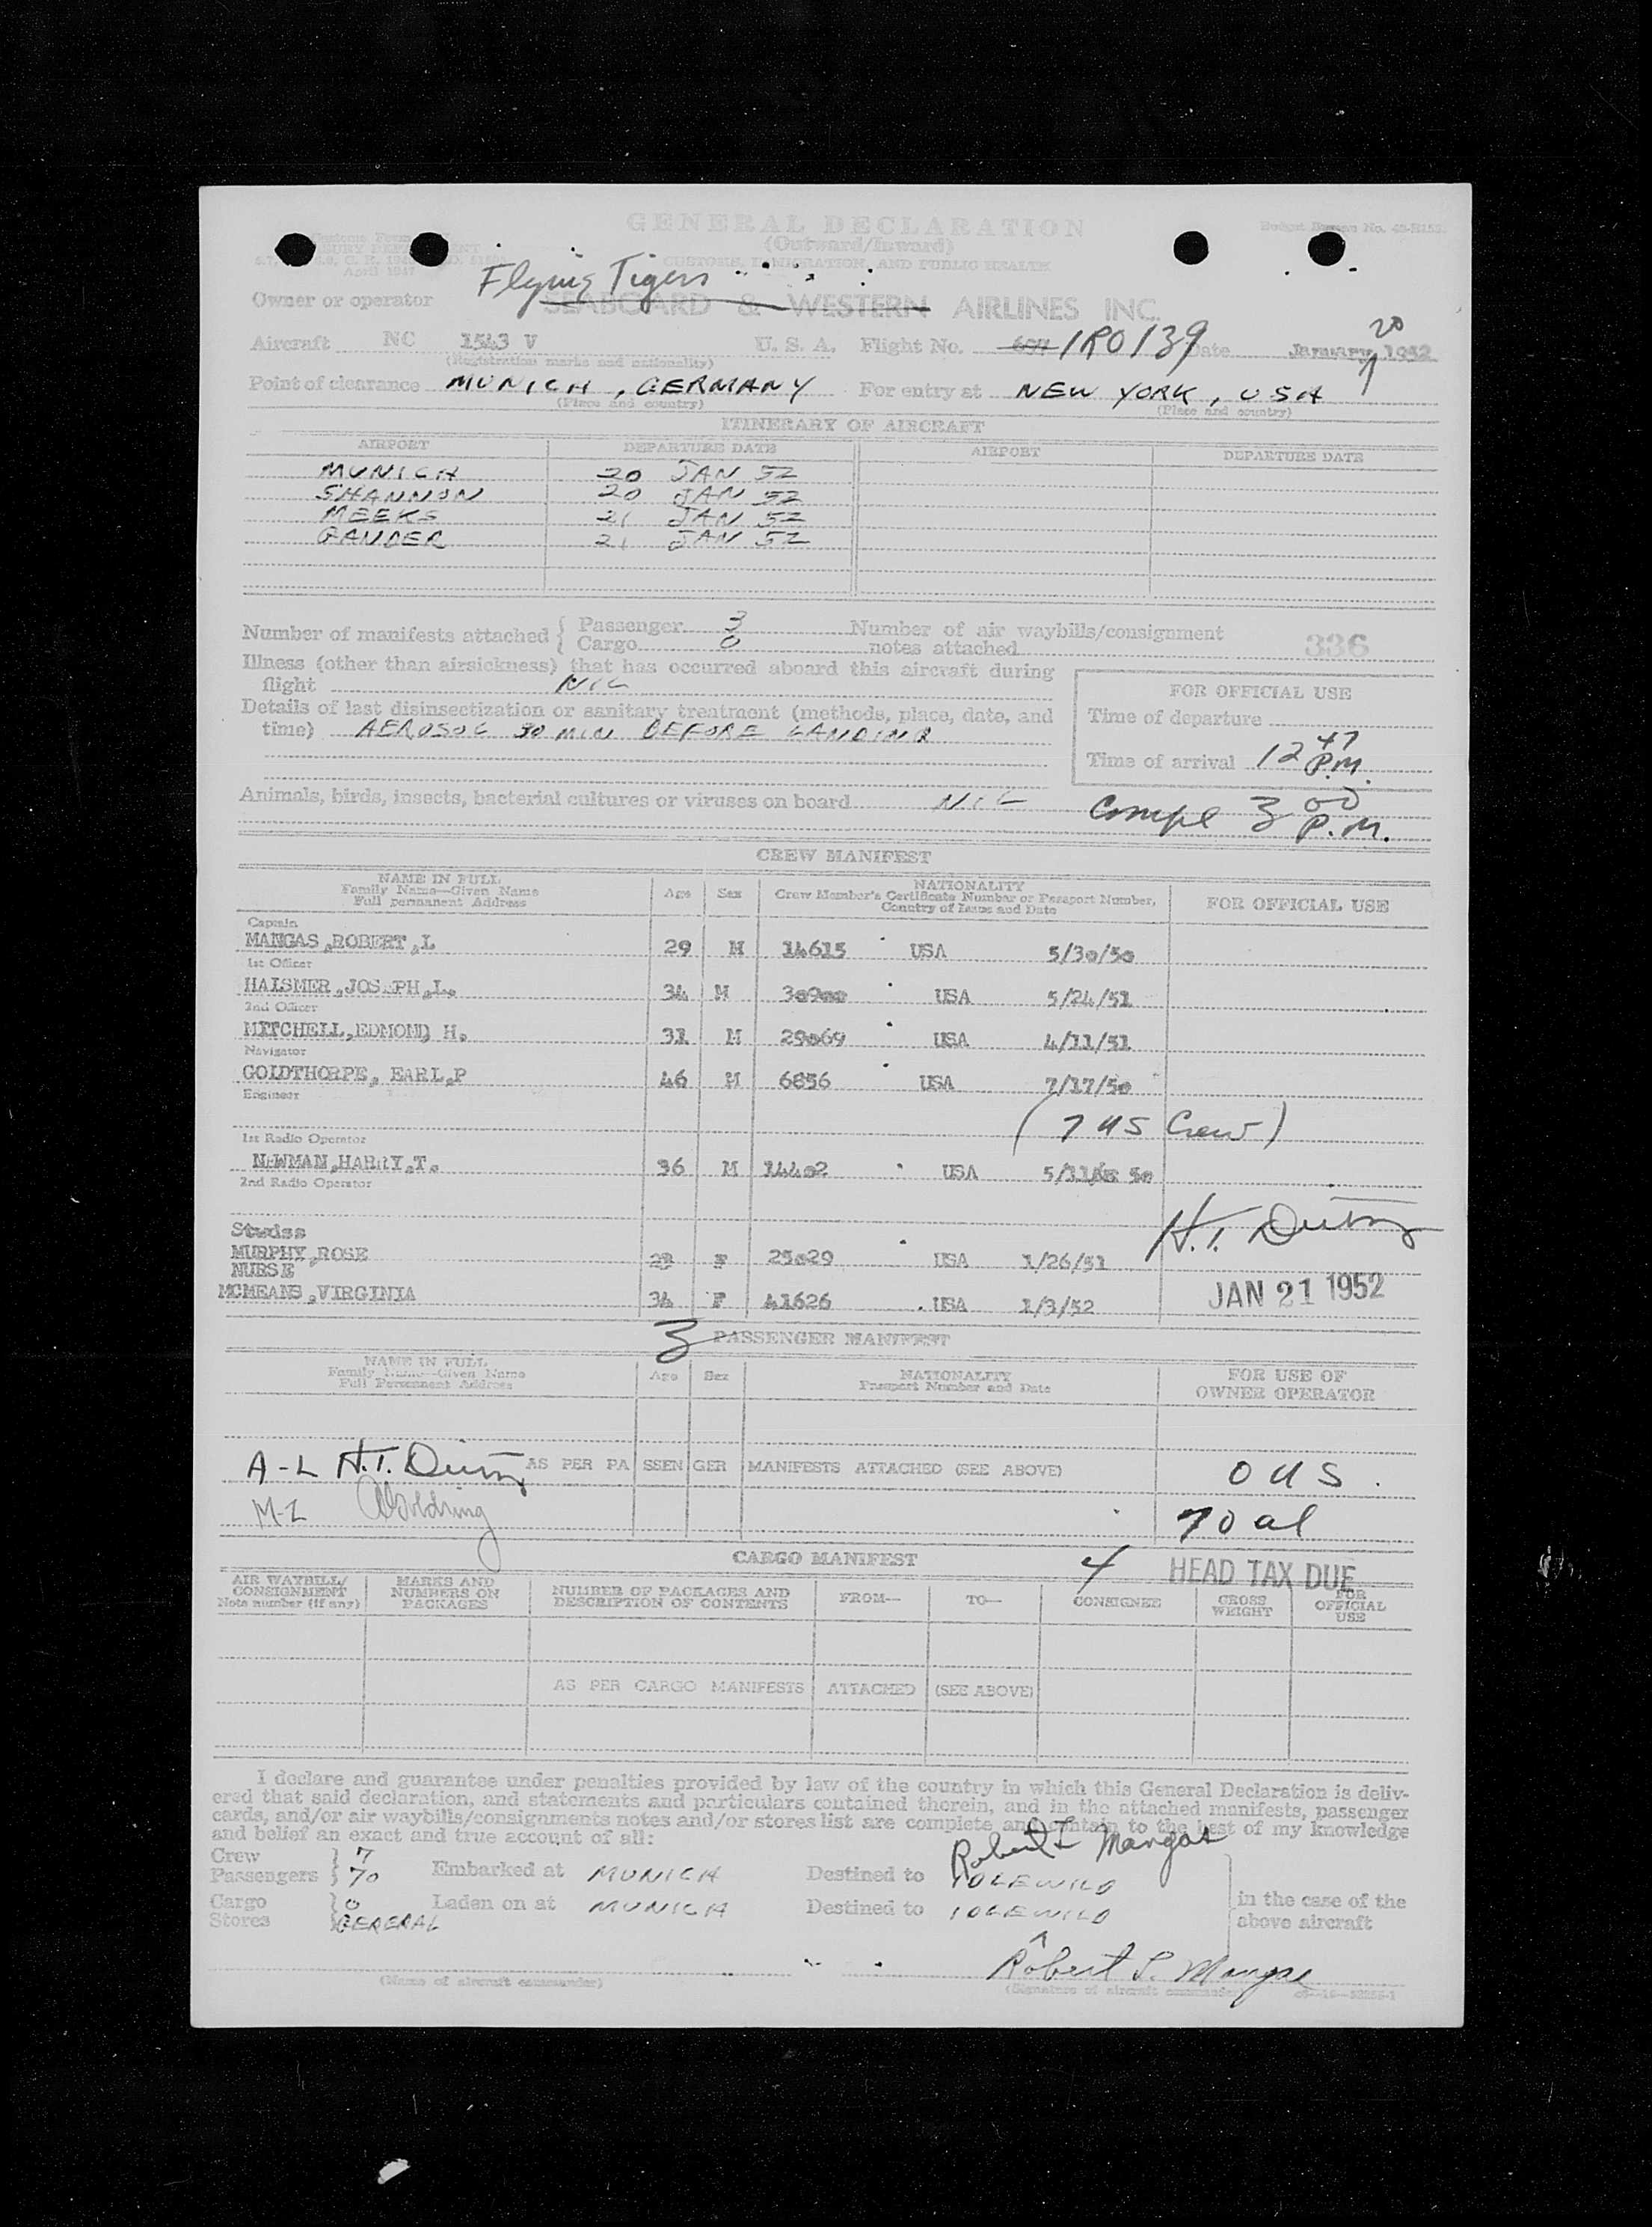 GENERAL DECLARATION
(Outward/Inward)
CUSTOMS, IMMIGRATION, AND PUBLIC HEALTH
Customs Form
April 1947
Budget Bureau No.
Flying Tigers
Owner or operator SEABOARD & WESTERN AIRLINES INC.
Aircraft NC 1543 V U. S. A. Flight No. IRO139 Date January 20 1952
(Registration marks and nationality)
Point of clearance MUNICH, GERMANY For entry at NEW YORK, USA
(Place and country) (Place and country)
ITINERARY OF AIRCRAFT
AIRPORT DEPARTURE DATE AIRPORT DEPARTURE DATE
MUNICH 20 JAN 52
SHANNON 20 JAN 52
MEEKS 21 JAN 52
GANDER 21 JAN 52
Number of manifests attached { Passenger 3 Number of air waybills/consignment
Cargo 0 notes attached 336
Illness (other than airsickness) that has occurred aboard this aircraft during
flight NIL
FOR OFFICIAL USE
Details of last disinsectization or sanitary treatment (methods, place, date, and
time) AEROSOL 30 MIN BEFORE LANDING
Time of departure
Time of arrival 12 47 P.M.
Animals, birds, insects, bacterial cultures or viruses on board NIL
Compl 3 00 P.M.
CREW MANIFEST
NAME IN FULL
Family Name—Given Name
Full permanent Address
Age Sex
NATIONALITY
Crew Member's Certificate Number or Passport Number,
Country of Issue and Date
FOR OFFICIAL USE
Captain
MANGAS,ROBERT,L 29 M 14615 USA 5/30/50
1st Officer
HAISMER,JOSEPH,L. 34 M USA 5/24/51
2nd Officer
MITCHELL,EDMOND H. 31 M 29069 USA 4/11/51
Navigator
GOLDTHORPE, EARL,P 46 M 6856 USA 7/17/50
Engineer
(7 US Crew)
1st Radio Operator
NEWMAN,HARRY.T. 36 M 14402 USA 5/11/ 50
2nd Radio Operator
Stwdss
MURPHY,ROSE F 25029 USA 1/26/51
NURSE
MCMEANS,VIRGINIA 34 F 41626 USA 1/3/52
JAN 21 1952
3 PASSENGER MANIFEST
NAME IN FULL
Family Name—Given Name
Full Permanent Address
Age Sex
NATIONALITY
Passport Number and Date
FOR USE OF
OWNER OPERATOR
A-L H.T. AS PER PASSENGER MANIFESTS ATTACHED (SEE ABOVE) 0 US.
M-Z Goldring 70 al
CARGO MANIFEST 4 HEAD TAX DUE
AIR WAYBILL/
CONSIGNMENT
Note number (if any)
MARKS AND
NUMBERS ON
PACKAGES
NUMBER OF PACKAGES AND
DESCRIPTION OF CONTENTS
FROM— TO— CONSIGNEE
GROSS
WEIGHT
FOR
OFFICIAL
USE
AS PER CARGO MANIFESTS ATTACHED (SEE ABOVE)
I declare and guarantee under penalties provided by law of the country in which this General Declaration is deliv-
ered that said declaration, and statements and particulars contained therein, and in the attached manifests, passenger
cards, and/or air waybills/consignments notes and/or stores list are complete and contain to the best of my knowledge
and belief an exact and true account of all:
Robert L Mangas
Crew } 7
Passengers } 70 Embarked at MUNICH Destined to IDLEWILD
Cargo } 0 Laden on at MUNICH Destined to IDLEWILD in the case of the
Stores } GENERAL above aircraft
Robert L. Mangas
(Name of aircraft commander) (Signature of aircraft commander)